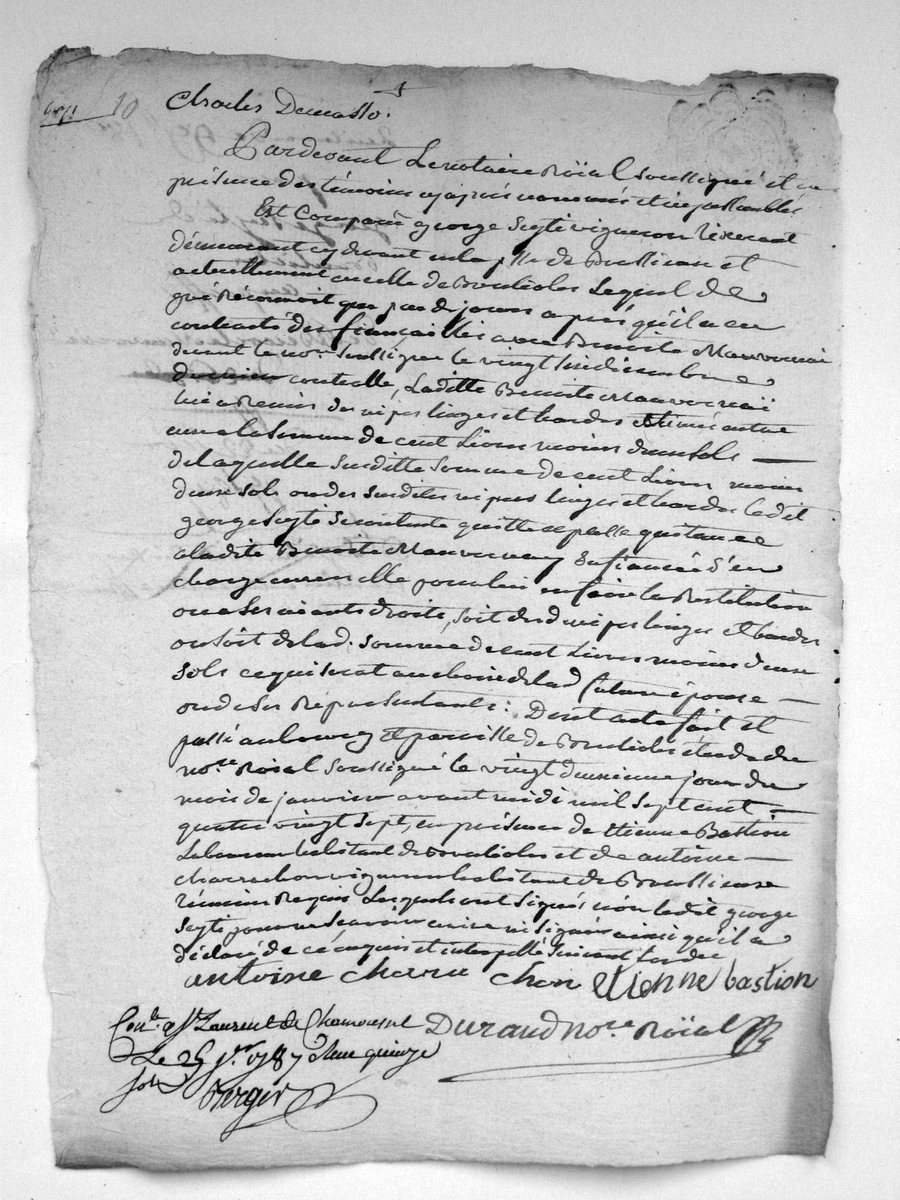 10
Charles Demasso.
Pardevant Le notaire Roïal soussigné et en
présence des témoins cyaprès nommés
Est Comparu george Segté vigneron
demeurant cydevant en la psse de et
actuellement en celle de Lequel de
gré Reconnoit que peu de jours après qu'il a eu
contracté des fiançailles avec Benoite Mauvernai
devant le nore soussigné le vingt six décembre
dernier controllé, Laditte Benoite Mauvernaÿ
lui a Remis des nipes linges et hardes estimés entre
eux a la somme de cent Livres moins deux sols
de laquelle susditte somme de cent Livres moins
deux sols ou des susdites nipes linges et hardes ledit
george Segté se contente quitte et passe quittance
a ladite Benoite Mauvernay sa fiancée s'en
charge envers elle pour lui en faire la Restitution
ou a ses aiants droits, soit desd nipes linges et hardes
ou soit de lad: somme de cent Livres moins deux
sols ce qui serat au choix de lad future épouse
ou de ses Représentants: Dont acte fait et
passé au bourg et paroisse de étude du
nore Roïal soussigné le vingt deuxieme jour du
mois de janvier avant midi mil sept cent
quatre vingt sept, en présence de etienne Bastion
Laboureur habitant de et de antoine
charrechon vigneron habitant de
témoins Requis Lesquels ont signés non ledit george
Segté pour ne savoir ecrire ni signer ainsi qu'il a
déclaré de ce enquis et interpellé suivant Lordce
antoine charre chon etienne bastion
Conllé a St Laurent de Chamousset Durand nore Roïal
Le 25 jer 1787 Reçu quinze
sols